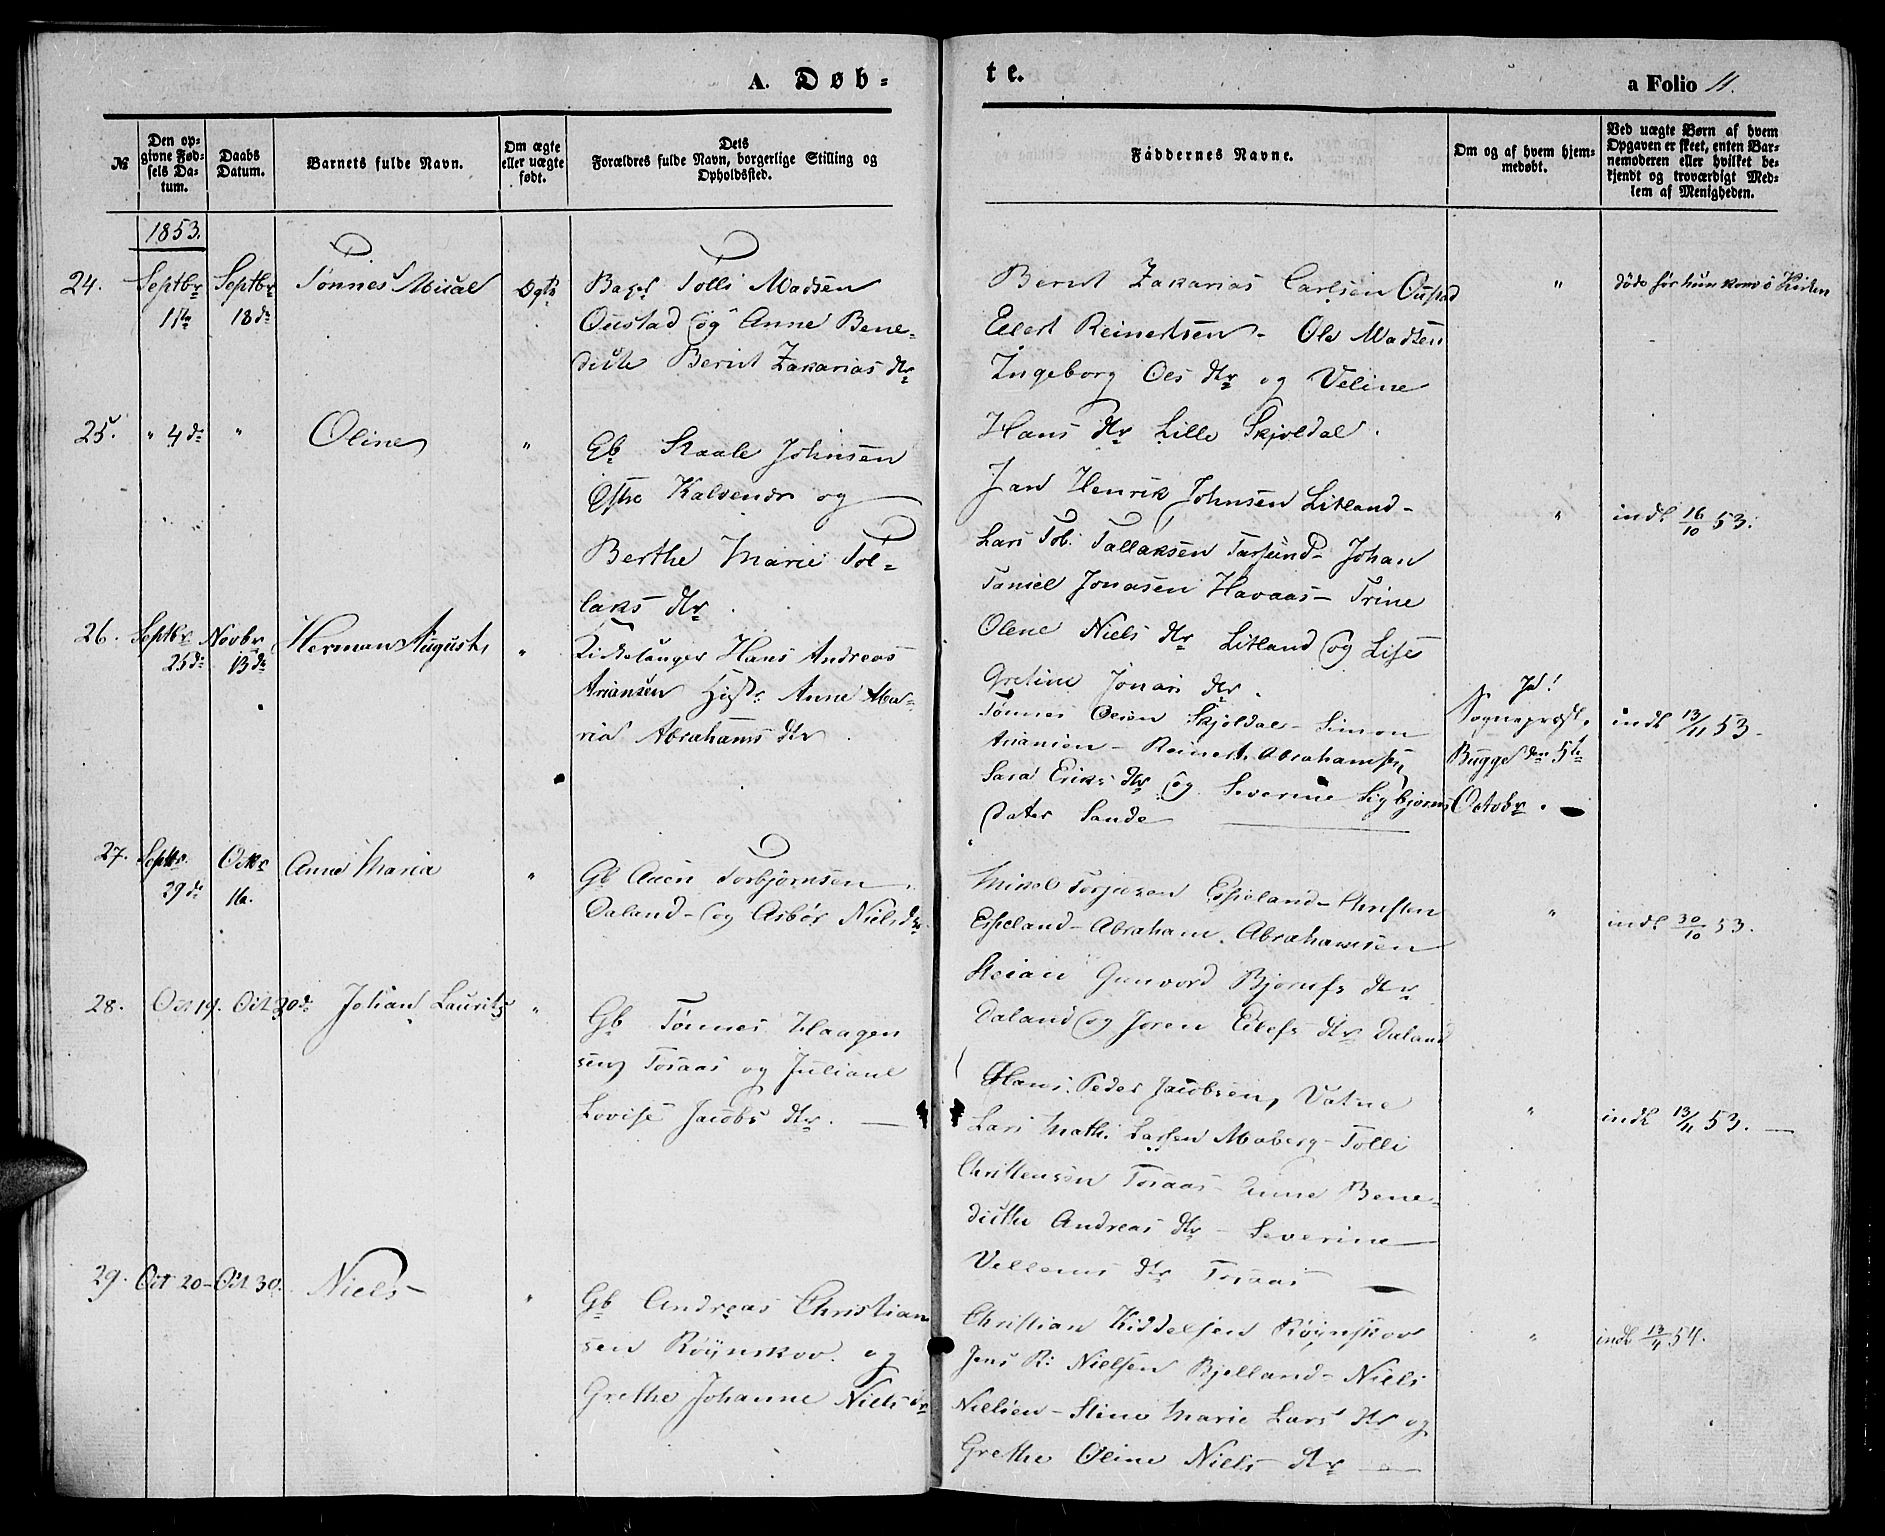 A. Døb=
te.
a Folio 11.
№
Den op=
givne Fød=
sels Da=
tum.
Daabs
Datum.
Barnets fulde Navn.
Om ægte
eller uægte
født.
Dets
Forældres fulde Navn, borgerlige Stilling og
Opholdssted.
Faddernes Navne.
Om og af hvem hjem=
medøbt.
Ved uægte Børn af hvem
Opgaven er skeet, enten Bar=
nemoderen eller hvilket be=
kjendt og troværdigt Med=
lem af Menigheden.
1853.
24.
Septbr
11te
Septbr
18de
Tønnes Mical
Ægte
Bager Tolli Madsen
Oustad og Anne Bene=
dicte Bernt Zakarias dtr
Bernt Zakarias Carlsen Oustad
Eilert Reinertsen - Ole Madsen
Ingeborg Oles dtr og Veline
Hans dtr Lille Skjoldal.
"
døde før hun kom i Kirken
25.
" 4de
"
Oline
"
Gb Staale Johnsen
Østre Kalvende og
Berthe Marie Tol=
laks dtr.
Jan Henrik Johnsen Litland -
Lars Tob. Tallaksen Farsund - Johan
Daniel Jonasen Havaas - Trine
Olene Niels dtr Litland og Lise
Gretine Jonas dtr.
"
indl 16/10 53.
26.
Septbr
25de
Novbr
13de
Herman August
"
Kirkesanger Hans Andreas
Ariansen Hust. Anne Ma=
ria Abrahams dtr.
Tønnes Olsen Skjoldal - Simon
Arianien - Reinert Abrahamsen
Sara Eriks dtr og Severine Sigbjørns
dater Sande
Ja!
Sognepræst
Bugge den 5te
Octobr.
indl 13/11 53.
27.
Septbr.
29de
Octbr
16.
Anne Maria
"
Gb Aaen Torbjørnsen
Daland - og Asbør Nielsdtr
Mikel Torjusen Espeland - Christen
Espeland - Abraham Abrahamsen
Gunvord Bjørnfs dtr
Daland og Joren Eilefs dtr Daland
"
indl 30/10 53.
28.
Oct 19.
Oct 30de
Johan Laurits
"
Gb Tønnes Haagen
sen Tosaas og Juliane
Lovise Jacobs dtr.
Hans Peder Jacobsen, Vatne
Lars Math: Larsen Moberg - Tolli
Christensen Tosaas - Anne Bene=
dicthe Andreas dtr - Severine
Vellems dtr Tosaas
"
indl 13/11 53.
29.
Oct 20 -
Oct 30.
Niels -
"
Gb Andreas Christian
sen Røynskov. og
Grethe Johanne Nielsdtr
Christian Kiddelsen Røynskov
Jens R: Nielsen Bjelland - Niels
Nielsen - Stine Marie Lars dtr og
Grethe Oline Niels dtr
"
indl 13/4 54.